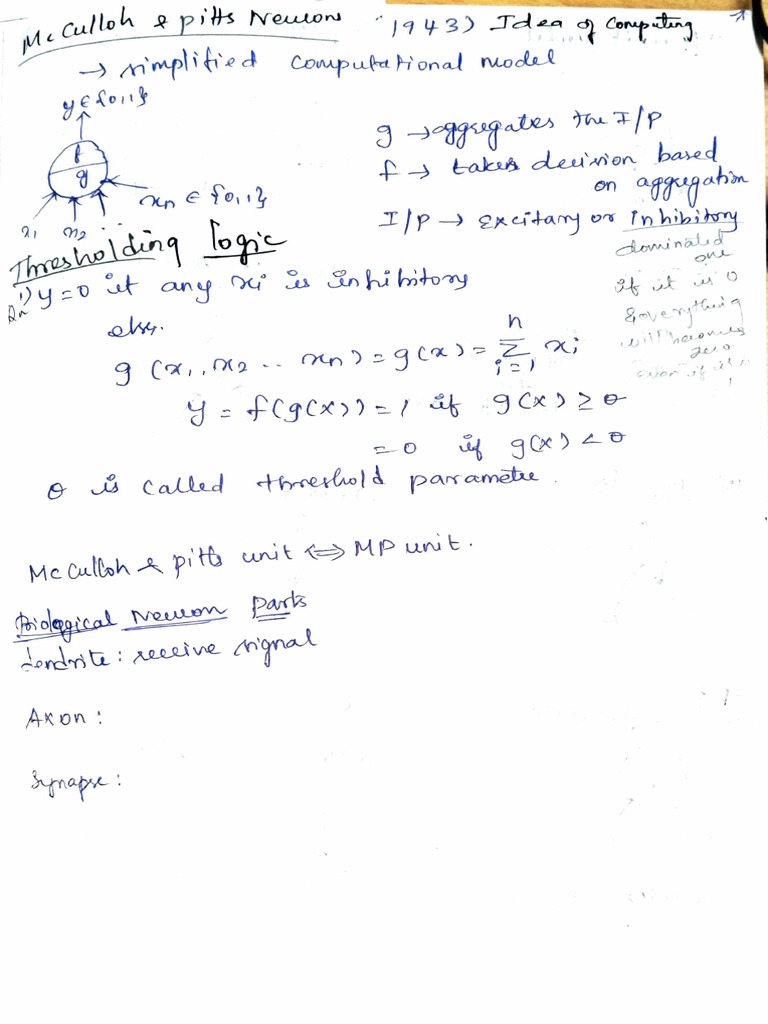 Mc Culloh & pitts Neurons (1943) Idea of Computing
→ simplified computational model
y ∈ {0,1}
f
g
x1 x2 .. xn ∈ {0,1}
g → aggregates the I/P
f → takes decision based
on aggregation
I/P → excitary or inhibitory
dominated
one
if it is 0
& everything
will becomes
zero
even if it is
1
Thresholding logic
1) y = 0 if any xi is inhibitory
else.
g (x1, x2 .. xn) = g(x) = n Σ i=1 xi
y = f(g(x)) = 1 if g(x) ≥ θ
= 0 if g(x) < θ
θ is called threshold parameter.
Mc Culloh & pitts unit ⇔ MP unit.
Biological Neuron Parts
dendrite : receive signal
Axon :
Synapse :